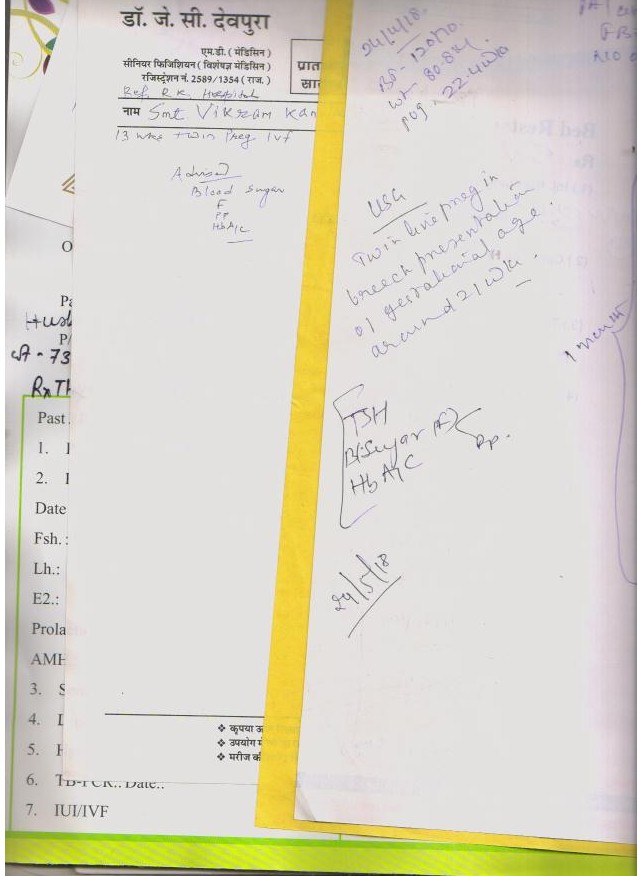 डॉ. जे. सी. देवपुरा
एम.डी. ( मेडिसिन )
सीनियर फिजिशियन ( विशेषज्ञ मेडिसिन )
रजिस्ट्रेशन नं. 2589/1354 ( राज. )
प्रात
Ref. R.K. Hospital
नाम Smt Vikram Kan
13 wks twin Preg IVF
Advised
Blood Sugar
F
PP
HbA1C
❖ कृपया
❖ उपयोग
❖ मरीज की
24/4/18.
BP- 120/70.
wt- 80.8 kg.
pog - 22.4 wks
USG
Twin live preg in
breech presentation
of gestational age
around 21 wks.
TSH
Bl. Sugar (F)
PP.
HbA1C
24/5/18
1 month
Bed Rest
Rx
O
Pa
Husb
P/
wt - 73
Rx TH
Past
1.
2.
Date
Fsh. :
Lh.:
E2.:
Prola
AMH
3. S
4.
5.
6. TB-PCR.. Date..
7. IUI/IVF